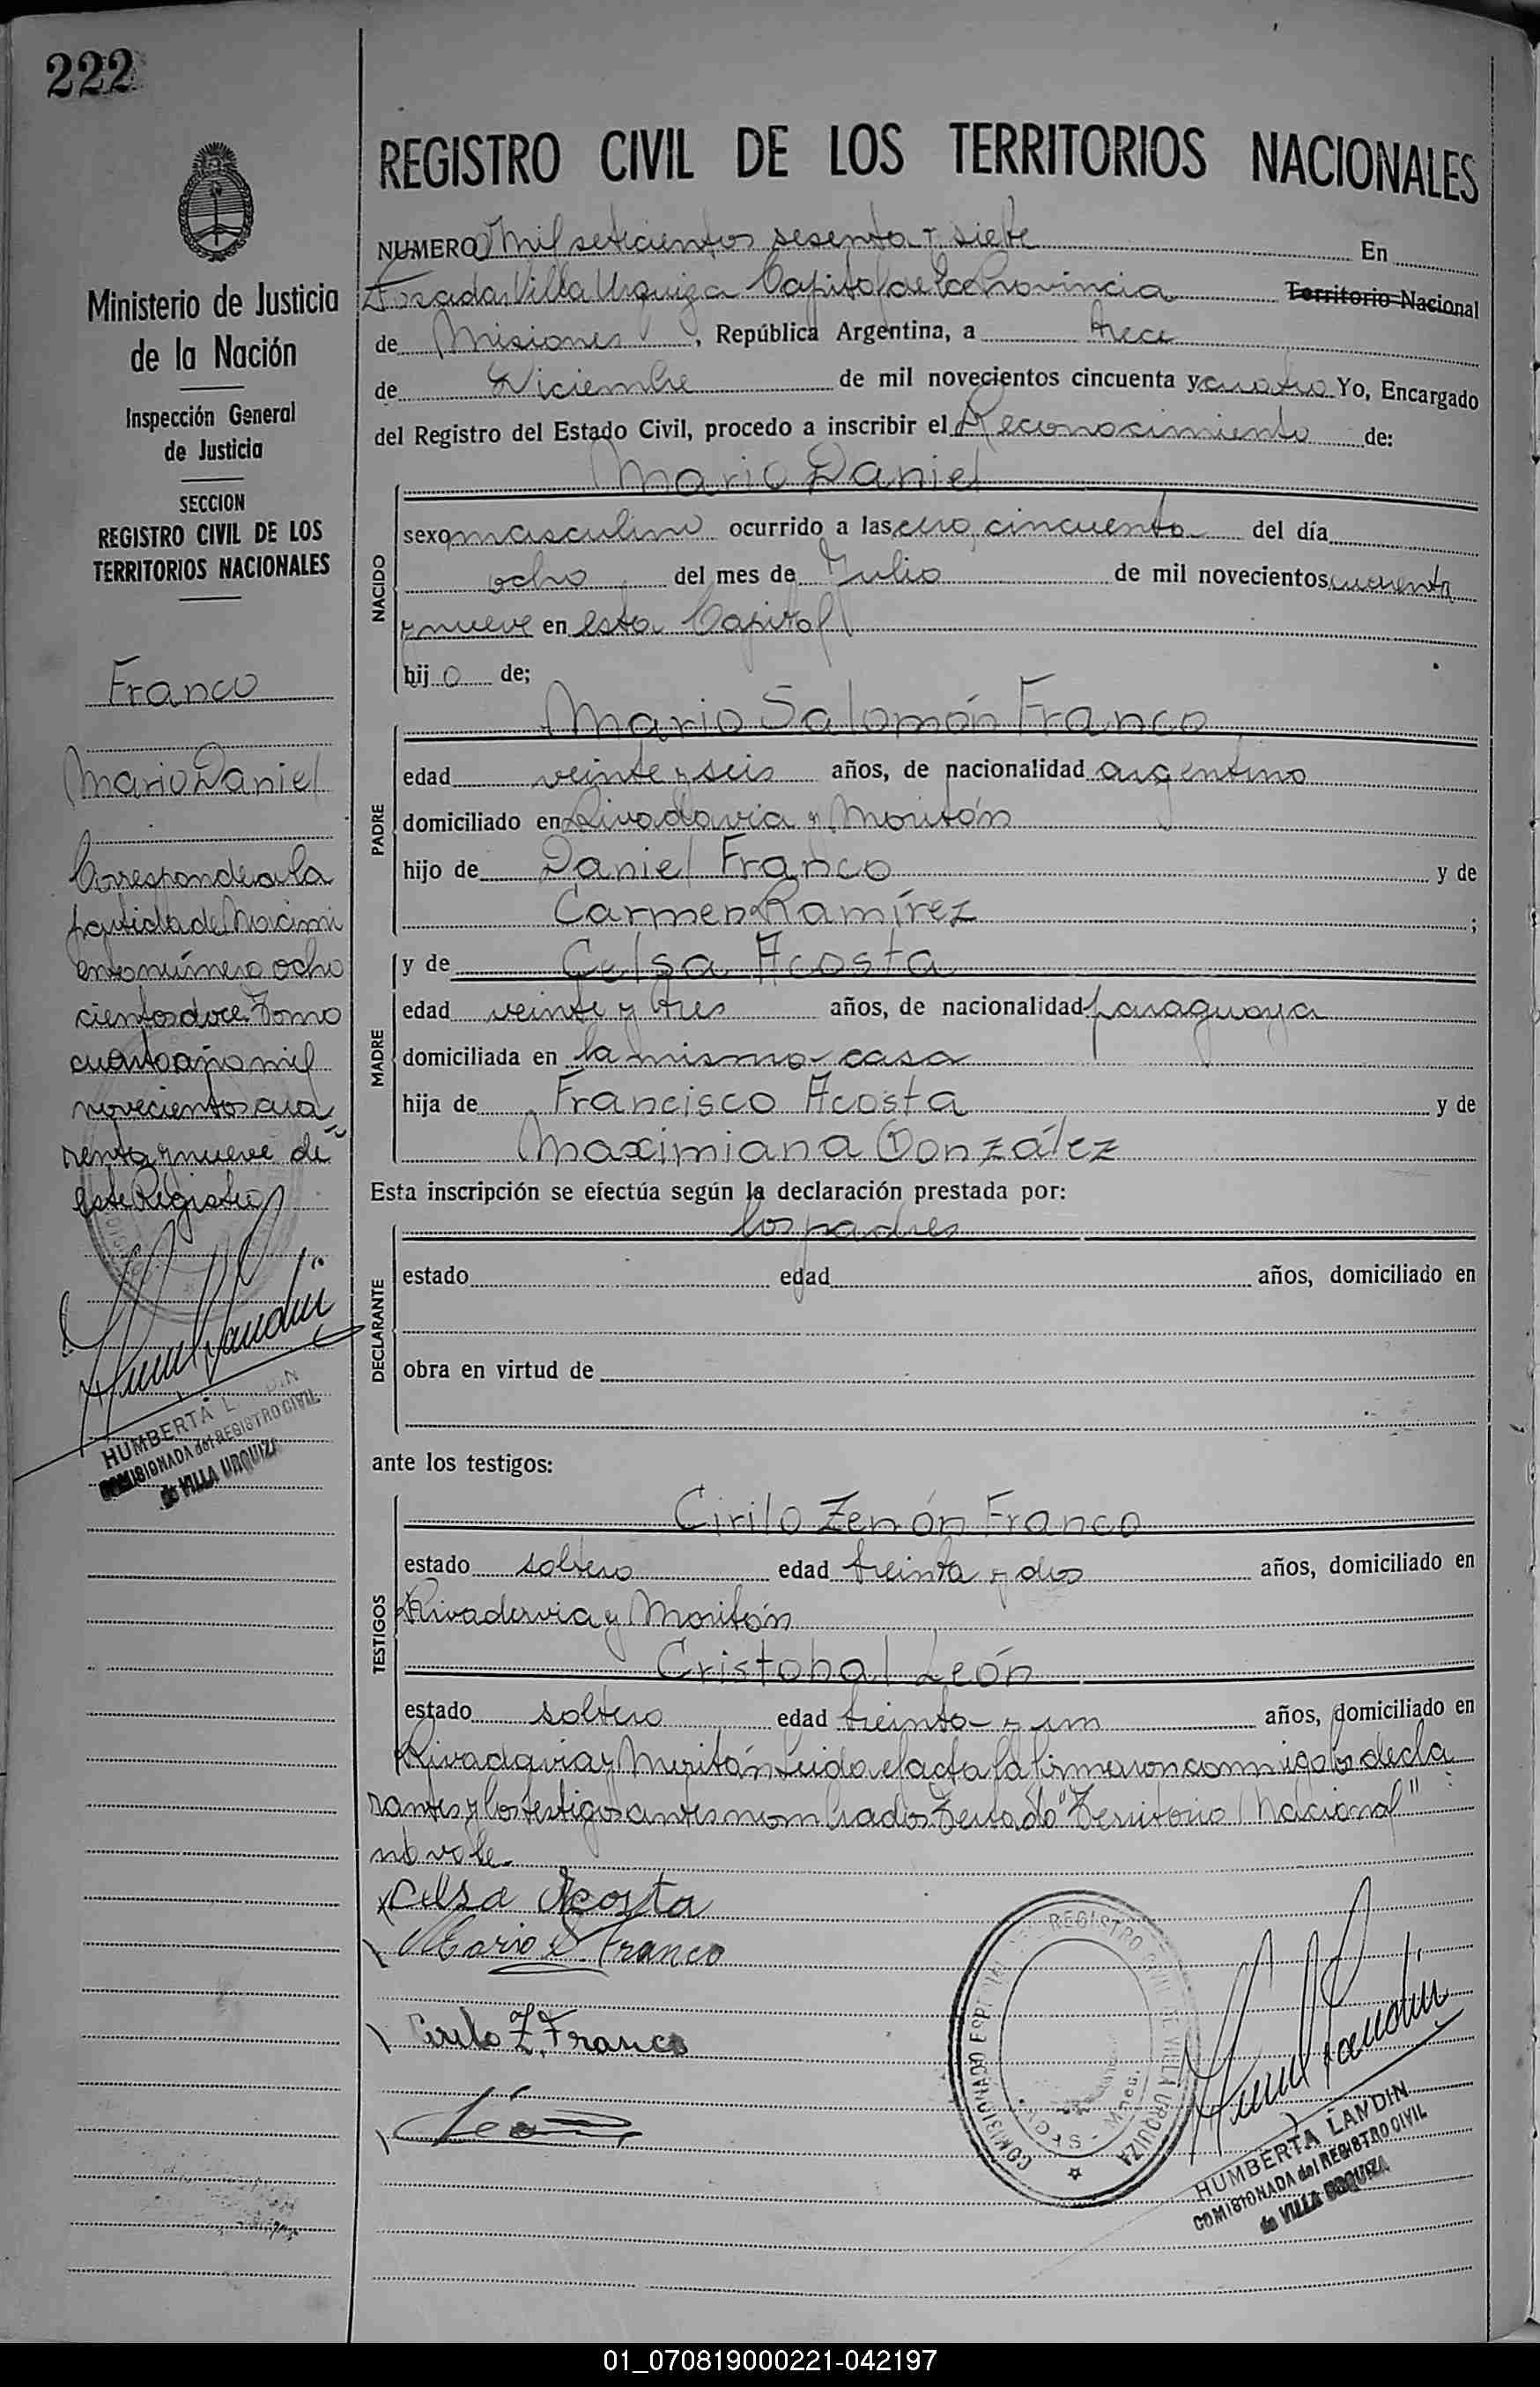 222
REGISTRO CIVIL DE LOS TERRITORIOS NACIONALES
NUMERO Mil setecientos sesenta y siete En
Posadas Villa Urquiza Capital de la Provincia Territorio Nacional
de Misiones, República Argentina, a trece
de Diciembre de mil novecientos cincuenta y cuatro Yo, Encargado
del Registro del Estado Civil, procedo a inscribir el Reconocimiento de:
Mario Daniel
NACIDO
sexo masculino ocurrido a las cero, cincuenta del día
ocho del mes de Julio de mil novecientos cuarenta
y nueve en esta Capital
hij o de;
Mario Salomón Franco
PADRE
edad veinte y seis años, de nacionalidad argentino
domiciliado en Rivadavia y Moritán
hijo de Daniel Franco y de
Carmen Ramírez ;
y de Celsa Acosta
MADRE
edad veinte y tres años, de nacionalidad paraguaya
domiciliada en la misma casa
hija de Francisco Acosta y de
Maximiana González
Esta inscripción se efectúa según la declaración prestada por:
los padres
DECLARANTE
estado edad años, domiciliado en
obra en virtud de
ante los testigos:
Cirilo Zenón Franco
TESTIGOS
estado soltero edad treinta y dos años, domiciliado en
Rivadavia y Moritán
Cristobal León
estado soltero edad treinta y un años, domiciliado en
Rivadavia y Moritán Leida el acta la firmaron conmigo los decla
rantes y los testigos antes nombrados Testado "Territorio Nacional"
no vale.
Celsa Acosta
Mario S. Franco
Cirilo Z. Franco
León
COMISIONADO ESPECIAL REGISTRO CIVIL DE VILLA URQUIZA
HUMBERTA LANDIN
COMISIONADA del REGISTRO CIVIL
de VILLA URQUIZA
Ministerio de Justicia
de la Nación
Inspección General
de Justicia
SECCION
REGISTRO CIVIL DE LOS
TERRITORIOS NACIONALES
Franco
Mario Daniel
Corresponde a la
partida de Nacimi
ento número ocho
cientos doce. Tomo
cuarto año mil
novecientos cua
renta y nueve de
este Registro
HUMBERTA L DIN
COMISIONADA del REGISTRO CIVIL
de VILLA URQUIZA
01_070819000221-042197